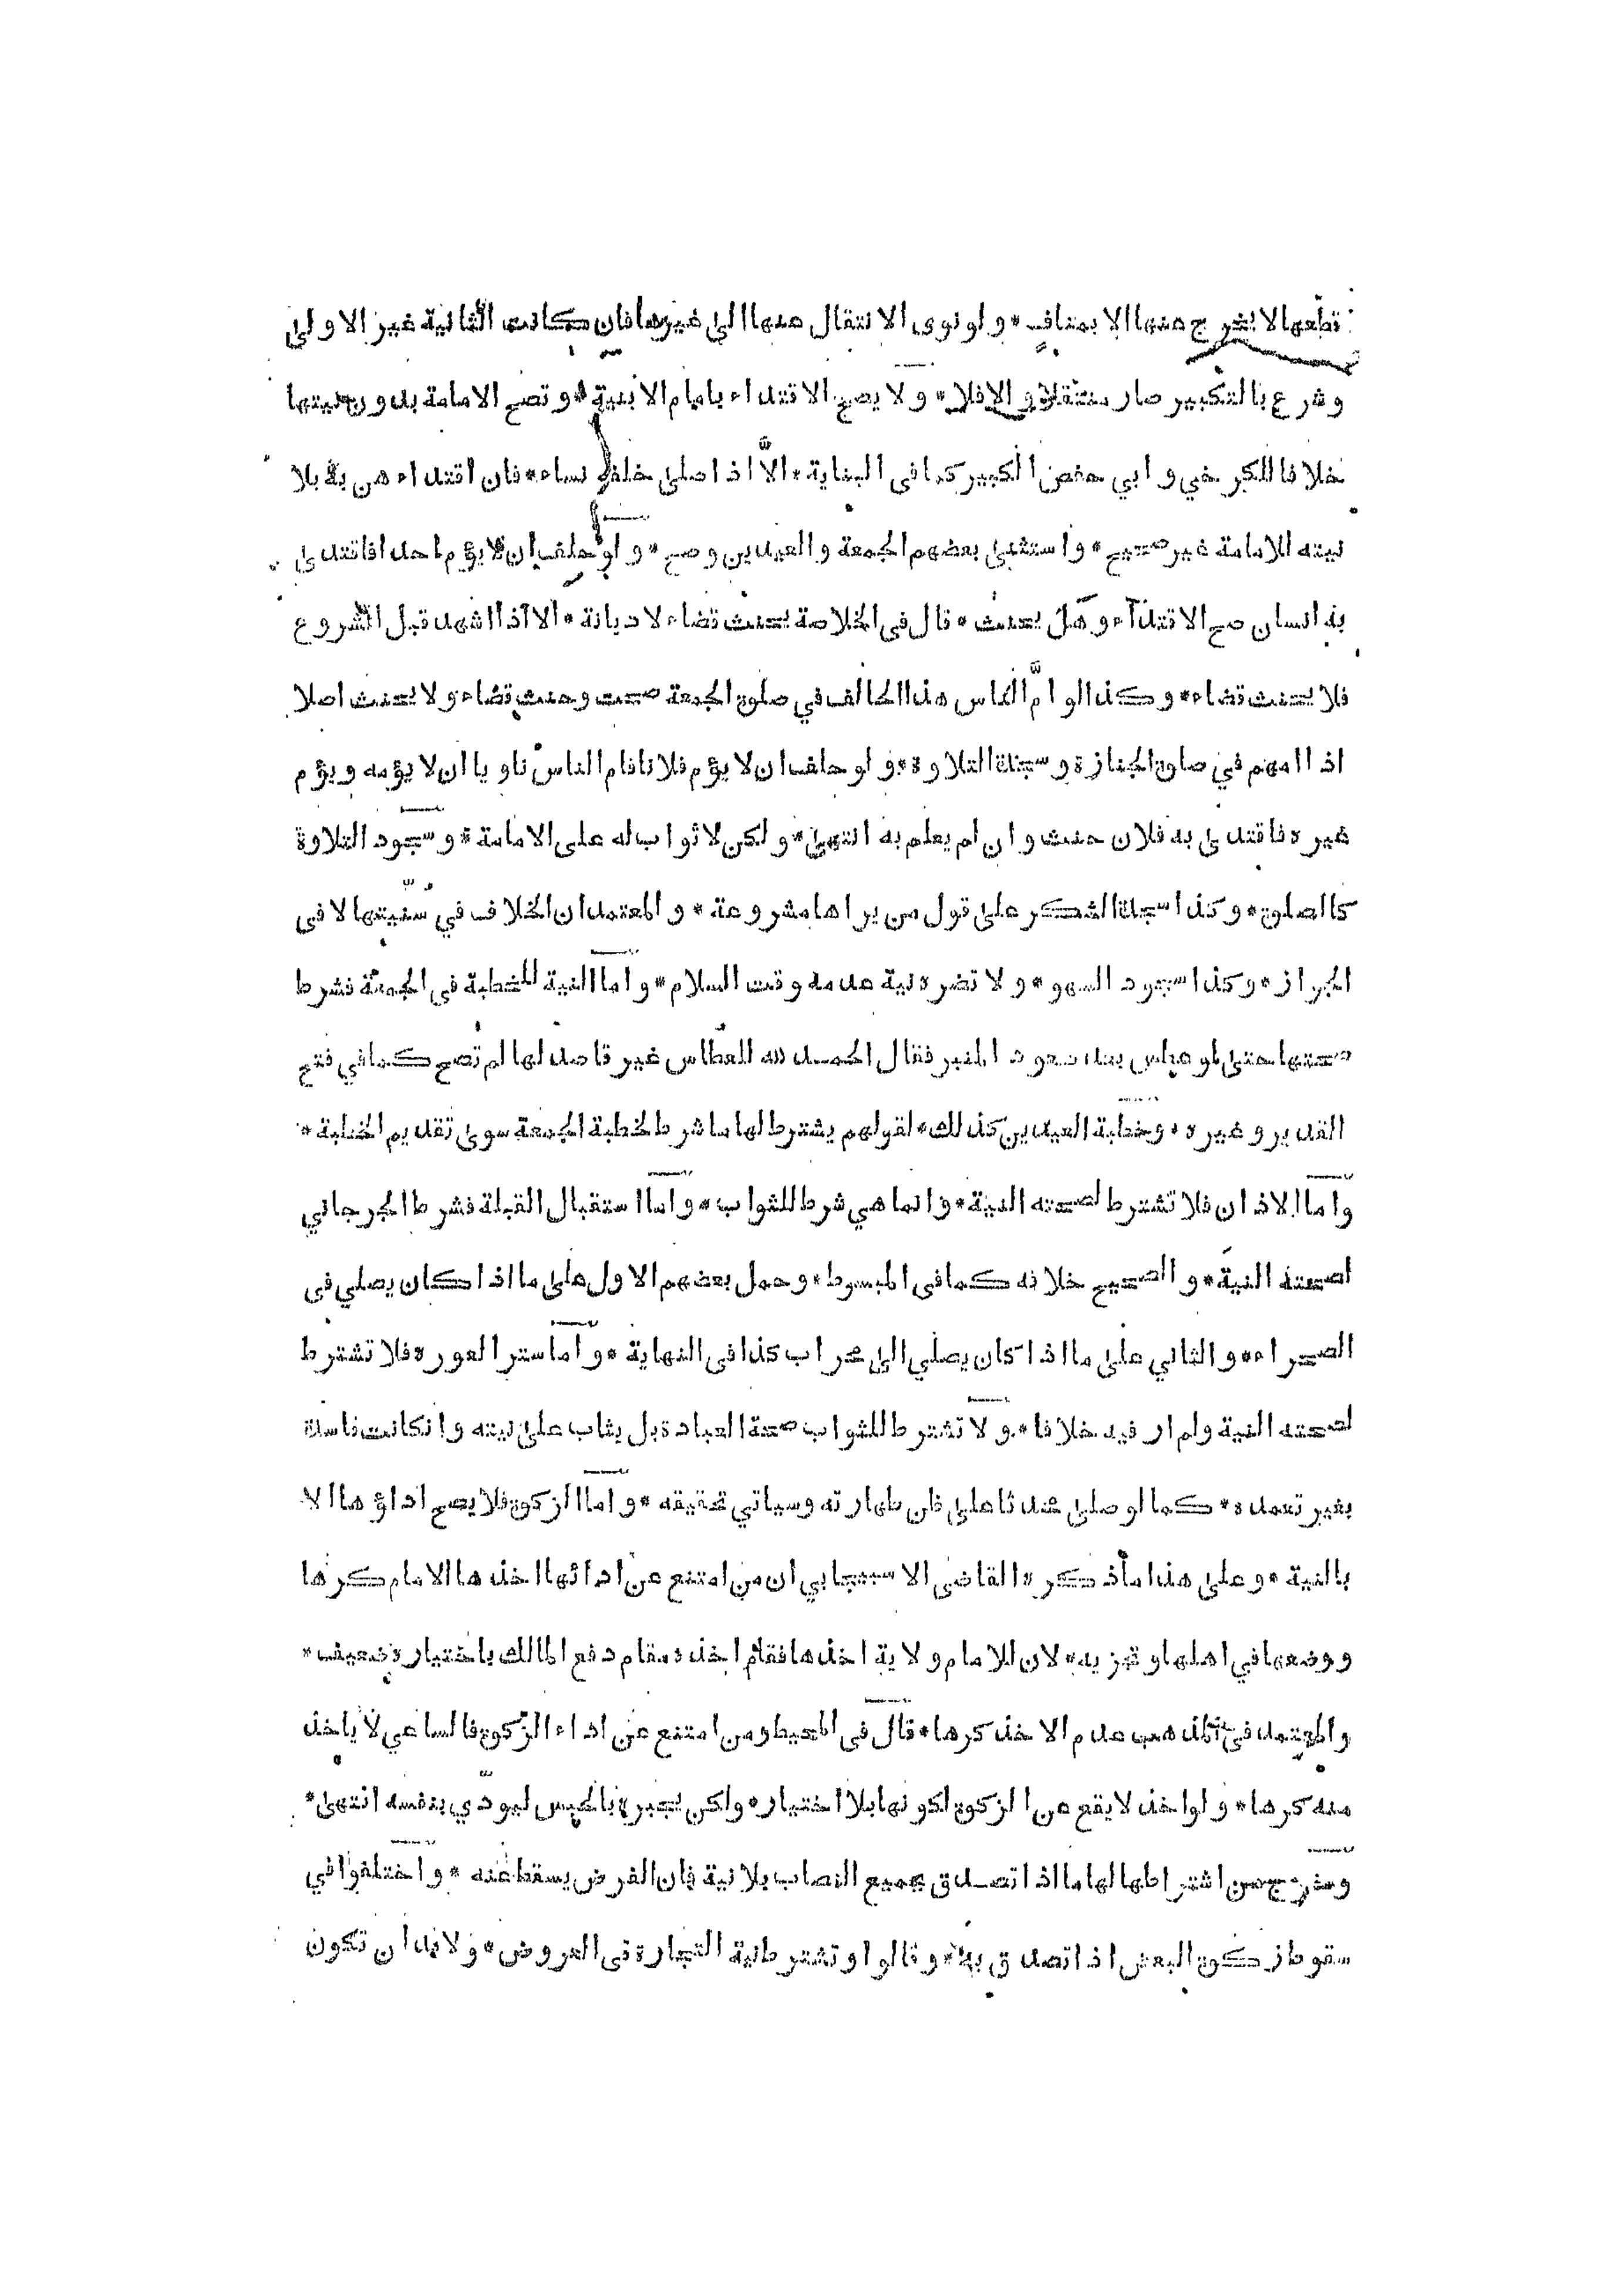 قطعها لا يخرج عنها الا بمناف * ولو نوى الانتقال عنها الى غيرها فان كانت الثانية غير الاولى
وشرع بالتكبير صار منتقلا والا فلا * ولا يصح الاقتداء بامام الا بنية * وتصح الامامة بدون نيتها
خلافا للكرخي وابي حفص الكبير كما فى البناية * الاّ اذا صلى خلفه نساء * فان اقتداءهن به بلا
نيته للامامة غير صحيح * واستثنى بعضهم الجمعة والعيدين وصح * ولو حلف ان لا يؤم احدا فاقتدى
به انسان صح الاقتداء وهل يحنث * قال فى الخلاصة يحنث قضاء لا ديانة * الا اذا اشهد قبل الشروع
فلا يحنث قضاء * وكذا لو امّ الناس هذا الحالف في صلوة الجمعة صحت وحنث قضاء ولا يحنث اصلا
اذا امهم في صلوة الجنازة وسجدة التلاوة * ولو حلف ان لا يؤم فلانا فام الناس ناويا ان لا يؤمه ويؤم
غيره فاقتدى به فلان حنث وان لم يعلم به انتهى * ولكن لا ثواب له على الامامة * وسجود التلاوة
كالصلوة * وكذا سجدة الشكر على قول من يراها مشروعة * والمعتمد ان الخلاف في سنّيتها لا فى
الجواز * وكذا سجود السهو * ولا تضره نية عدمه وقت السلام * واما النية للخطبة فى الجمعة فشرط
صحتها حتى لو عطس بعد صعود المنبر فقال الحمد لله للعطاس غير قاصد لها لم تصح كما في فتح
القدير وغيره * وخطبة العيدين كذلك * لقولهم يشترط لها ما شرط لخطبة الجمعة سوى تقديم الخطبة *
واما الاذان فلا تشترط لصحته النية * وانما هي شرط للثواب * واما استقبال القبلة فشرط الجرجاني
لصحته النية * والصحيح خلافه كما فى المبسوط * وحمل بعضهم الاول على ما اذا كان يصلي فى
الصحراء * والثاني على ما اذا كان يصلي الى محراب كذا فى النهاية * واما ستر العورة فلا تشترط
لصحته النية ولم ار فيه خلافا * ولا تشترط للثواب صحة العبادة بل يثاب على نيته وانكانت فاسدة
بغير تعمده * كما لو صلى محدثا على ظن طهارته وسياتي تحقيقه * واما الزكوة فلا يصح اداؤها الا
بالنية * وعلى هذا ما ذكره القاضى الاسبيجابي ان من امتنع عن ادائها اخذها الامام كرها
ووضعها في اهلها وتجزيه * لان للامام ولاية اخذها فقام اخذه مقام دفع المالك باختياره ضعيف *
والمعتمد فى المذهب عدم الاخذ كرها * قال فى المحيط ومن امتنع عن اداء الزكوة فالساعي لا ياخذ
منه كرها * ولو اخذ لا يقع عن الزكوة لكونها بلا اختيار * ولكن يجبره بالحبس ليودّي بنفسه انتهى *
وخرج من اشتراطها لها ما اذا تصدق بجميع النصاب بلا نية فان الفرض يسقط عنه * واختلفوا في
سقوط زكوة البعض اذا تصدق به * وقالوا وتشترط نية التجارة فى العروض * ولابد ان تكون